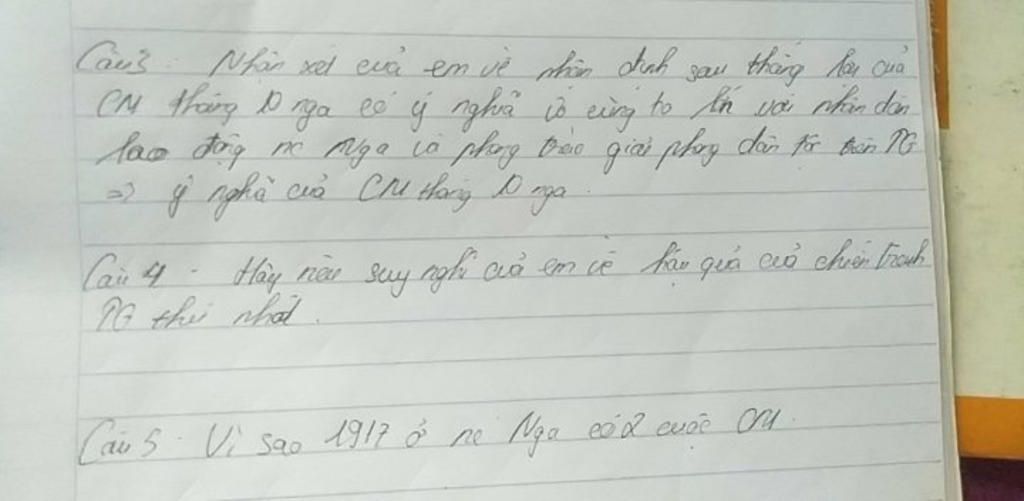 Câu3. Nhận xét của em về nhận định sau thắng lợi của
CM tháng 10 nga có ý nghĩa vô cùng to lớn với nhân dân
lao động nc Nga và phong trào giải phóng dân tộc trên TG
=> ý nghĩa của CM tháng 10 nga.
Câu 4. Hãy nêu suy nghĩ của em về hậu quả của chiến tranh
TG thứ nhất.
Câu 5. Vì sao 1917 ở nc Nga có 2 cuộc CM.